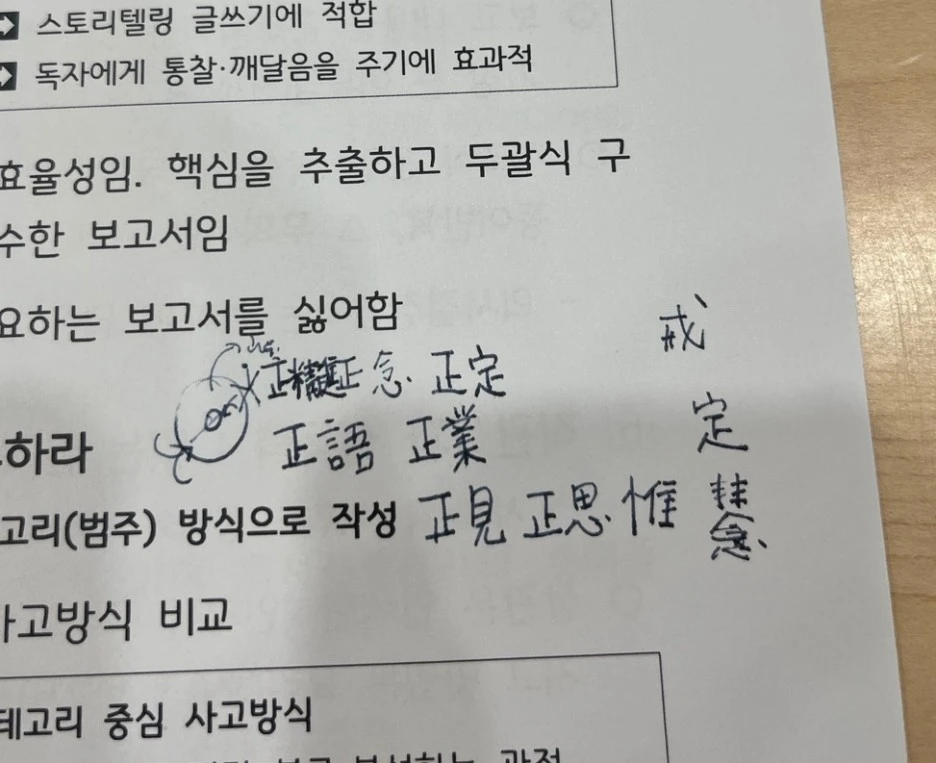 스토리텔링 글쓰기에 적합
독자에게 통찰·깨달음을 주기에 효과적
효율성임. 핵심을 추출하고 두괄식 구
수한 보고서임
요하는 보고서를 싫어함
戒
正精進正念 正定
定
正語 正業
하라
正見 正思惟 慧
고리(범주) 방식으로 작성
사고방식 비교
테고리 중심 사고방식